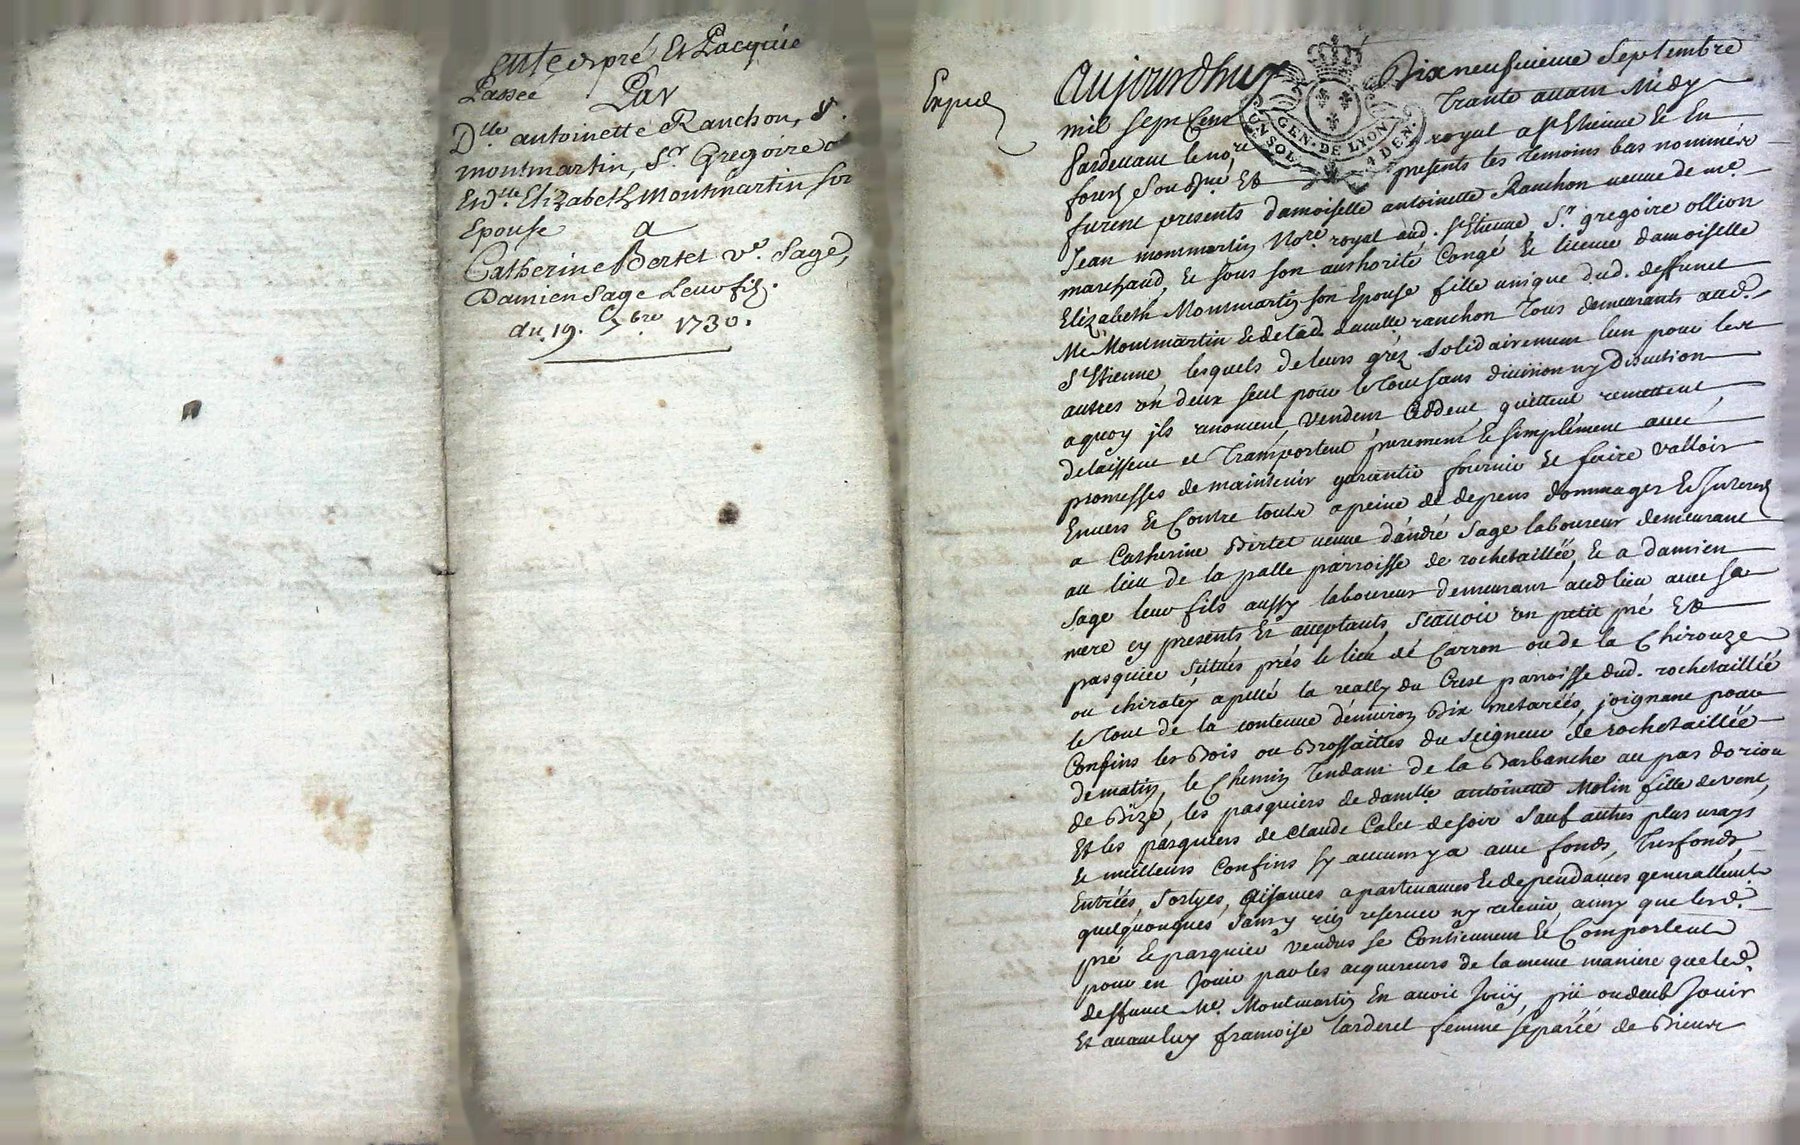 Vente de pré Et Pacquie
Passée Par
Dlle antoinette Ranchon, Sr.
montmartin, Sr Gregoire o
Et dlle Elizabeth Montmartin son
Epouse a
Catherine Bertet ve. Sage,
Damien Sage Leur fils.
du 19. 7bre 1730.
Expéd
Aujourdhuy Dix neufvieme Septembre
mil sept Cent Trante avant Midy
Pardevant le nore royal a St Etienne Et En
forest Sousigné Et presents les temoins bas nommés
furent presents damoiselle antoinette Ranchon veuve de me.
Jean montmartin Nore royal aud. St Etienne, Sr gregoire ollion
marchand, Et sous son authorité Congé Et licence damoiselle
Elizabeth Montmartin son Epouse fille unique dud. deffunct
Me Montmartin Et de lad. damlle ranchon Tous demeurants aud.
St Etienne, lesquels de leurs gréz Solidairement lun pour les
autres un deux seul pour le tout sans division ny Discution
aquoy ils renoncent, Vendent Cèddent, quittent remettent,
delaissent et Transportent purement Et simplement avec
promesses de maintenir garantir fournir Et faire valloir
Envers Et Contre touts apeine de depens dommages Et Interests
a Catherine Bertet veuve dándré Sage laboureur demeurant
au lieu de la palle parroisse de rochetaillée, Et a damien
Sage leur fils aussy laboureur demeurant audt lieu avec sa
mere cy presents Et acceptants, Scavoir un petit pré Et
pasquier Scitués prés le lieu de Carron ou de la Chirouze
ou chiratey apellé la really du Crest parroisse dud. rochetaillée
le tout de la contenue dénviron Dix metarées, joignant pour
Confins les Bois ou Brossailles du Seigneur de rochetaillée
de matin, le Chemin Tendant de la Barbanche au pas doriou
de Bize, les pasquiers de damlle antoinette Molin fille de vent,
Et les pasquiers de Claude Calet de soir Sauf autres plus vrays
Et meilleurs Confins sy aucuns y a avec fonds, Tresfonds,
Entrées, Sortyes, Aisances apartenances Et dependances generallement
quelquonques Sans y rien reserver ny retenir ainsy que lesd.
pré Et pasquier vendus se Contiennent Et Comportent
pour en Jouir par les acquereurs de la meme maniere que led.
deffunct Me. Montmartin En avoit Jouy, pû ou deub Jouir
Et avant luy françoise larderet femme séparée de Biens
GEN. DE LYON
UN SOL 4 DEN.